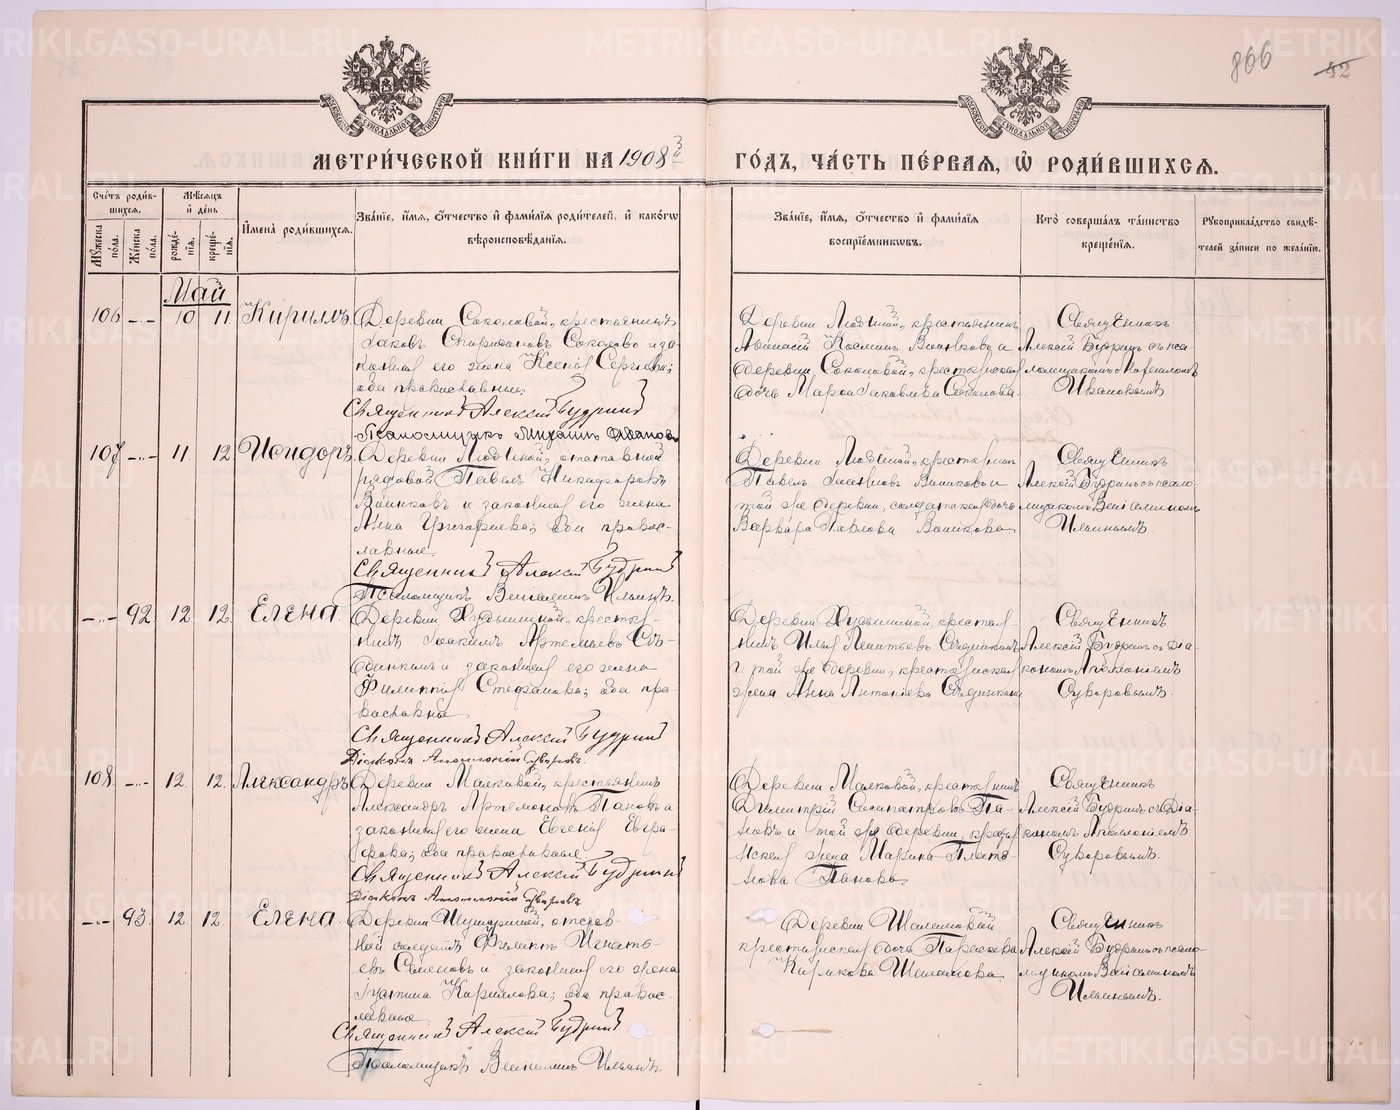 METRIKI.GASO-URAL.RU
866
42
МОСКОВСКОЙ СѴНОДАЛЬНОЙ ТИПОГРАФІИ
МОСКОВСКОЙ СѴНОДАЛЬНОЙ ТИПОГРАФІИ
МЕТРИ́ЧЕСКОЙ КНИ́ГИ НА 1908й ГО́ДЪ, ЧА́СТЬ ПЕ́РВАЯ, Ѡ РОДИ́ВШИХСѦ.
Сче́тъ роди́вшихся.
Мѣ́сяцъ и́ де́нь
Му́жеска по́ла.
Же́нска по́ла.
рожде́нїѧ.
креще́нїѧ.
И҆мена̀ роди́вшихсѧ.
Зва́нїе, и҆́мѧ, ѻ҆́тчество и҆ фами́лїѧ роди́телей, и҆ како́гѡ
вѣроисповѣ́данїѧ.
Зва́нїе, и҆́мѧ, ѻ҆́тчество и҆ фами́лїѧ
воспрїе́мникѡвъ.
Кто̀ соверша́лъ та́инство
креще́нїѧ.
Рꙋкоприкла́дство свидѣ́-
телей за́писи по жела́нїю.
Май
106 -"- 10 11 Кириллъ
Деревни Соколовой, крестьянинъ
Іаковъ Спиридоновъ Соколовъ и за-
конная его жена Ксенія Сергіева;
оба православные.
Священникъ Алексій Будринъ
Псаломщикъ Михаилъ Ивановъ
крестьянинъ
Деревни Соколовой, крестьянская
дочь Марѳа Іаковлева Соколова.
Священникъ
Алексій Будринъ съ пса-
ломщикомъ Михаиломъ
Ивановымъ
107 -"- 11. 12 Исидоръ.
отставной
рядовой Павелъ Никифоровъ
и законная его жена
Анна Григориева; оба правос-
лавные.
Священникъ Алексій Будринъ
Псаломщикъ Веніаминъ Ильинъ.
крестьянинъ
Павелъ
той же деревни, солдатская дочь
Варвара Павлова
Священникъ
Алексій Будринъ съ псало-
мщикомъ Веніаминомъ
Ильинымъ.
-"- 92 12 12. Елена.
крестья-
нинъ Іоакимъ Артемьевъ Сѣ-
динкинъ и законная его жена
Филиппія Стефанова; оба пра-
вославные
Священникъ Алексій Будринъ
Діаконъ Аполлоній Суворовъ.
крестья-
нинъ Илья Леонтьевъ Сѣдинкинъ
и той же деревни, крестьянская
жена Анна Антоніева Сѣдинкина
Священникъ
Алексій Будринъ съ діа-
кономъ Аполлоніемъ
Суворовымъ.
108. -"- 12. 12. Александръ.
Деревни Малковой, крестьянинъ
Александръ Артемоновъ Пановъ и
законная его жена Евгенія Евгра-
фова; оба православные
Священникъ Алексій Будринъ
Діаконъ Аполлоній Суворовъ
Деревни Малковой, крестьянинъ
Димитрій Сосипатровъ Па-
новъ и той же деревни, крестьян-
ская жена Марина Плато-
нова Панова.
Священникъ
Алексій Будринъ съ діа-
кономъ Аполлоніемъ
Суворовымъ.
-"- 93. 12. 12. Елена.
отстав-
ной солдатъ Филиппъ Игнать-
евъ Семеновъ и законная его жена
Іустина Кириллова; оба правос-
лавные
Священникъ Алексій Будринъ
Псаломщикъ Веніаминъ Ильинъ.
Деревни
крестьянская дочь Параскева
Кирикова Шаламова.
Священникъ
Алексій Будринъ съ псало-
мщикомъ Веніаминомъ
Ильинымъ.